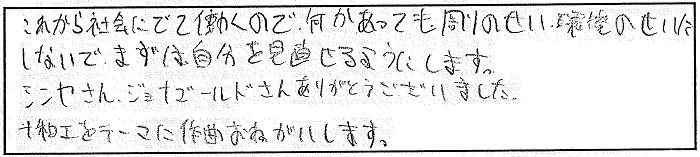 これから社会にでて働くので、何かあっても周りのせい、環境のせいに
しないで、まずは自分を見直せるようにします。
シンヤさん、ジョナゴールドさんありがとうございました。
をテーマに作曲おねがいします。